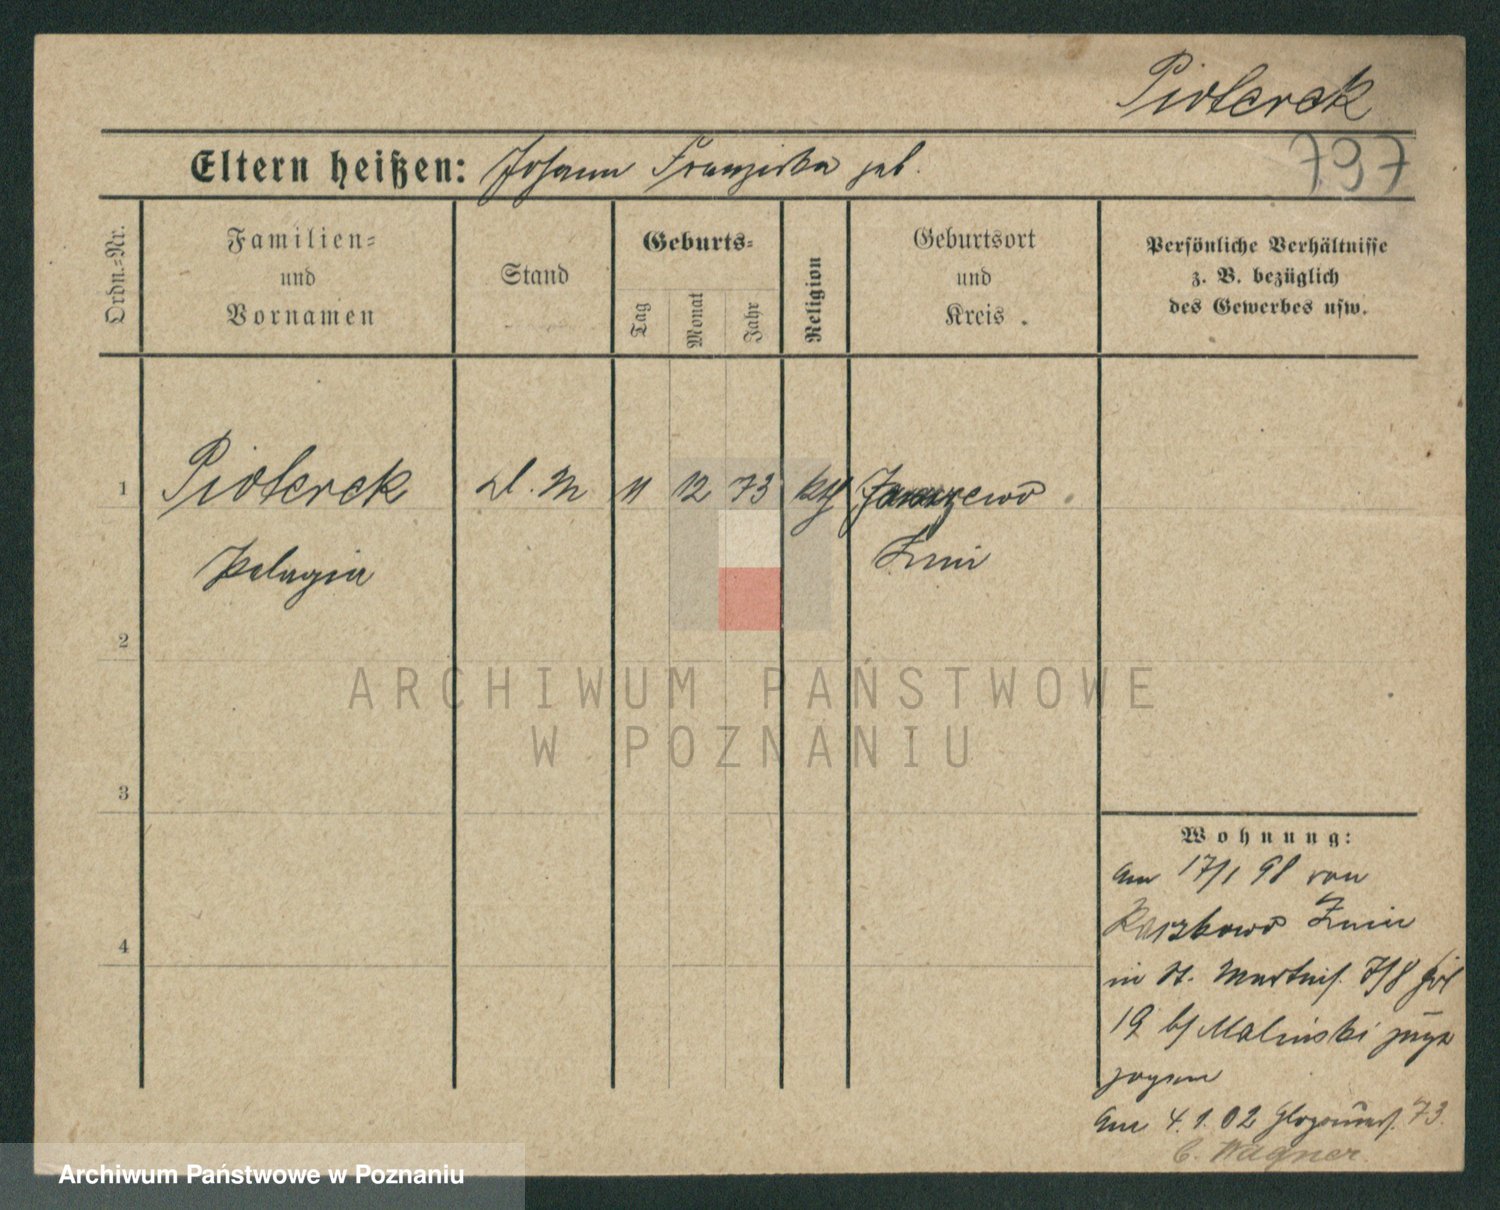 Pioterek
797
Eltern heißen: Johann Franziska geb.
Ordn.-Nr.
Familien-
und
Vornamen
Stand
Geburts-
Tag
Monat
Jahr
Religion
Geburtsort
und
Kreis
Persönliche Verhältnisse
z. B. bezüglich
des Gewerbes usw.
1
Pioterek 11 12 73 kth
Pelagia
Znin
2
3
4
ARCHIWUM PAŃSTWOWE
W POZNANIU
Wohnung:
am 17/1 98 von
Znin
in St. Martinst.
19 b/ Malinski
zogen
am 4.1.02 73.
C. Wagner
Archiwum Państwowe w Poznaniu